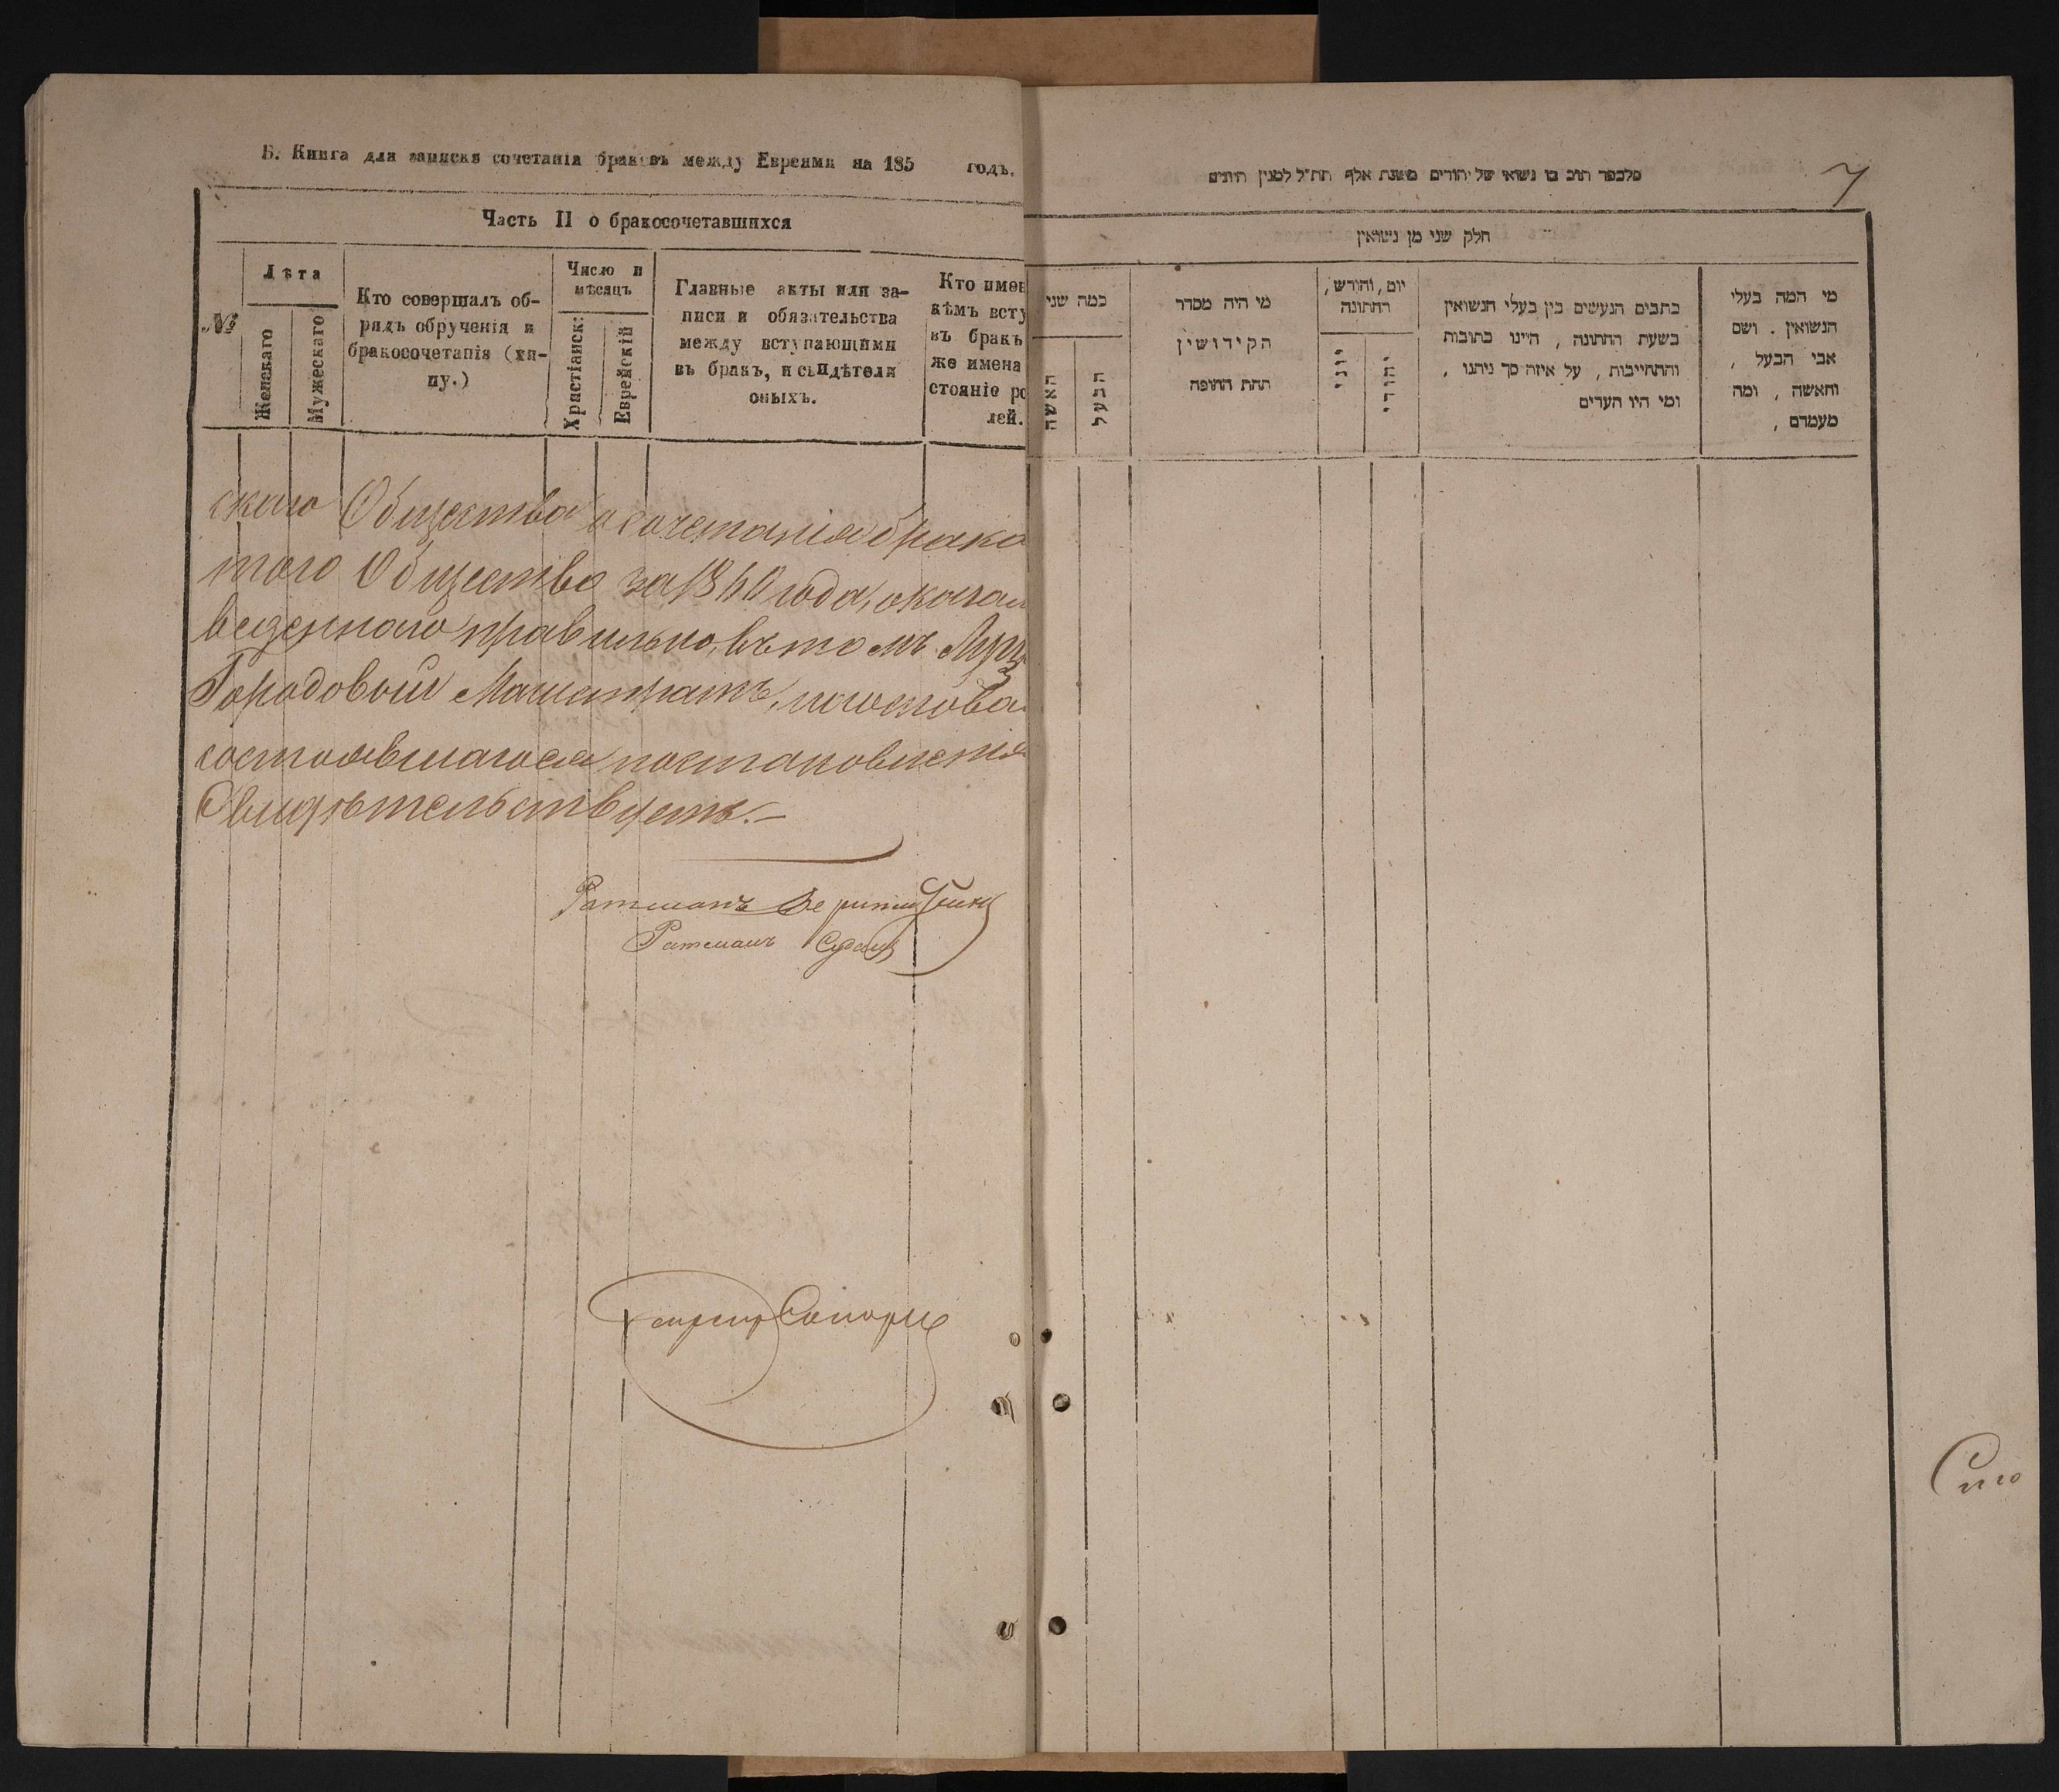 Б. Книга для записки сочетанія браковъ между Евреями на 185 годъ.
Часть II о бракосочетавшихся
№
Лѣта
Женскаго
Мужескаго
Кто совершалъ об-
рядъ обрученія и
бракосочетанія (хи-
пу.)
Число и
мѣсяцъ
Христіанск:
Еврейскій
Главные акты или за-
писи и обязательства
между вступающими
въ бракъ, и свидѣтели
оныхъ.
Кто имен
кѣмъ всту
въ бракъ
же имена
стояніе ро
лей.
скаго Общества о сочетаніи брако
того Общества за 1860 года, оказал
веденною правильно, въ томъ
Городовый Магистратъ,
состоявшагося постановленія
Свидѣтельствуетъ.—
Ратманъ
Ратманъ
7
חלק שני מן נשואין
כמה שני
האשה
הבעל
מי היה מסדר
הקידושין
תחת החופה
יום, וחודש,
החתונה
יוני
יהודי
כתבים הנעשים בין בעלי הנשואין
בשעת החתונה, היינו כתובות
והתחייבות, על איזה סך ניתנו,
ומי היו העדים
מי המה בעלי
הנשואין. ושם
אבי הבעל,
והאשה, ומה
מעמדם,